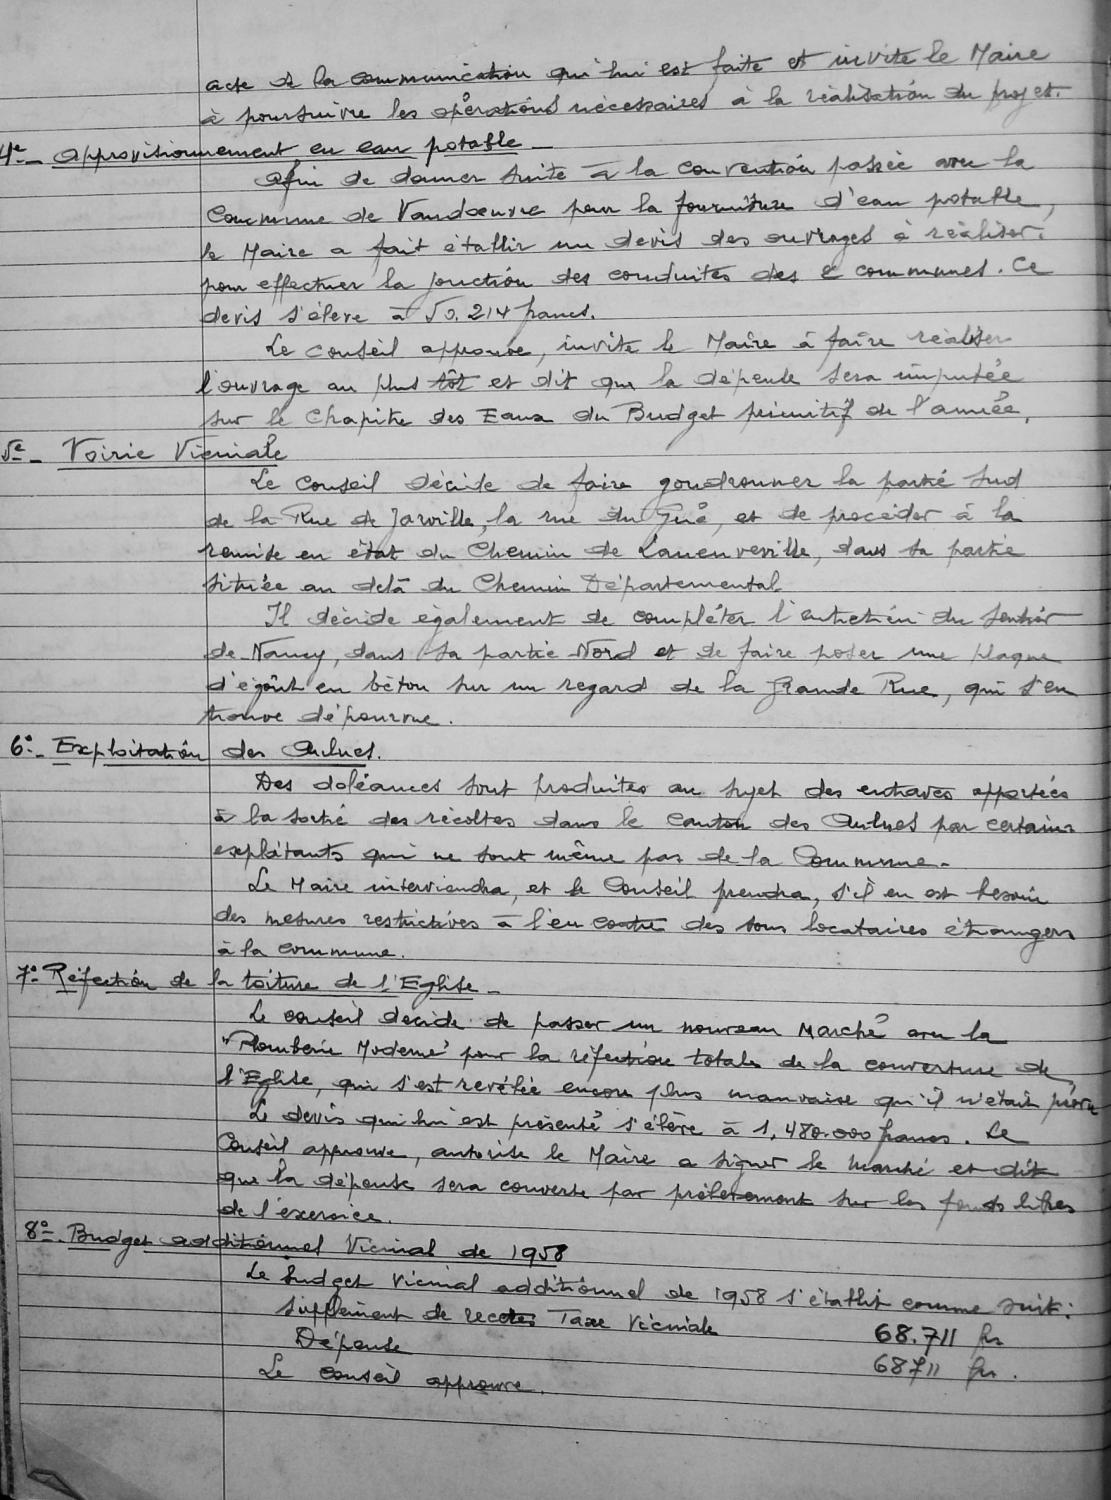 acte de la communication qui lui est faite et invite le Maire
à poursuivre les opérations nécessaires à la réalisation du projet.
4e_ Approvisionnement en eau potable_
Afin de donner suite à la convention passée avec la
Commune de Vandoeuvre pour la fourniture d'eau potable,
le Maire a fait établir un devis des ouvrages à réaliser
pour effectuer la jonction des conduites des 2 communes. Ce
devis s'élève à 50.214 francs.
Le Conseil approuve, invite le Maire à faire réaliser
l'ouvrage au plus tôt et dit que la dépense sera imputée
sur le Chapitre des Eaux du Budget primitif de l'année.
5e_ Voirie Vicinale
Le Conseil décide de faire goudronner la partie Sud
de la Rue de Jarville, la rue du Gué, et de procéder à la
remise en état du Chemin de Laneuveville, dans sa partie
située au delà du Chemin Départemental
Il décide également de compléter l'entretien du Sentier
de Nancy, dans sa partie Nord et de faire poser une plaque
d'égoût en béton sur un regard de la Grande Rue, qui s'en
trouve dépourvue.
6°_ Exploitation des Aulnes.
Des doléances sont produites au sujet des entraves apportées
à la sortie des récoltes dans le Canton des Aulnes par certains
exploitants qui ne sont même pas de la Commune.
Le Maire interviendra, et le Conseil prendra, s'il en est besoin
des mesures restrictives à l'encontre des sous locataires étrangers
à la commune.
7°_ Réfection de la toiture de l'Eglise_
Le conseil décide de passer un nouveau Marché avec la
"Plomberie Moderne" pour la réfection totale de la couverture de
l'Eglise, qui s'est revélée encore plus mauvaise qu'il n'était prévu
Le devis qui lui est présenté s'élève à 1.480.000 francs. Le
Conseil approuve, autorise le Maire a signer le marché et dit
que la dépense sera couverte par prélèvement sur les fonds libres
de l'exercice.
8°_ Budget additionnel Vicinal de 1958
Le budget vicinal additionnel de 1958 s'établit comme suit:
Supplément de recettes Taxe Vicinale 68.711 frs
Dépense 68711 frs.
Le Conseil approuve.